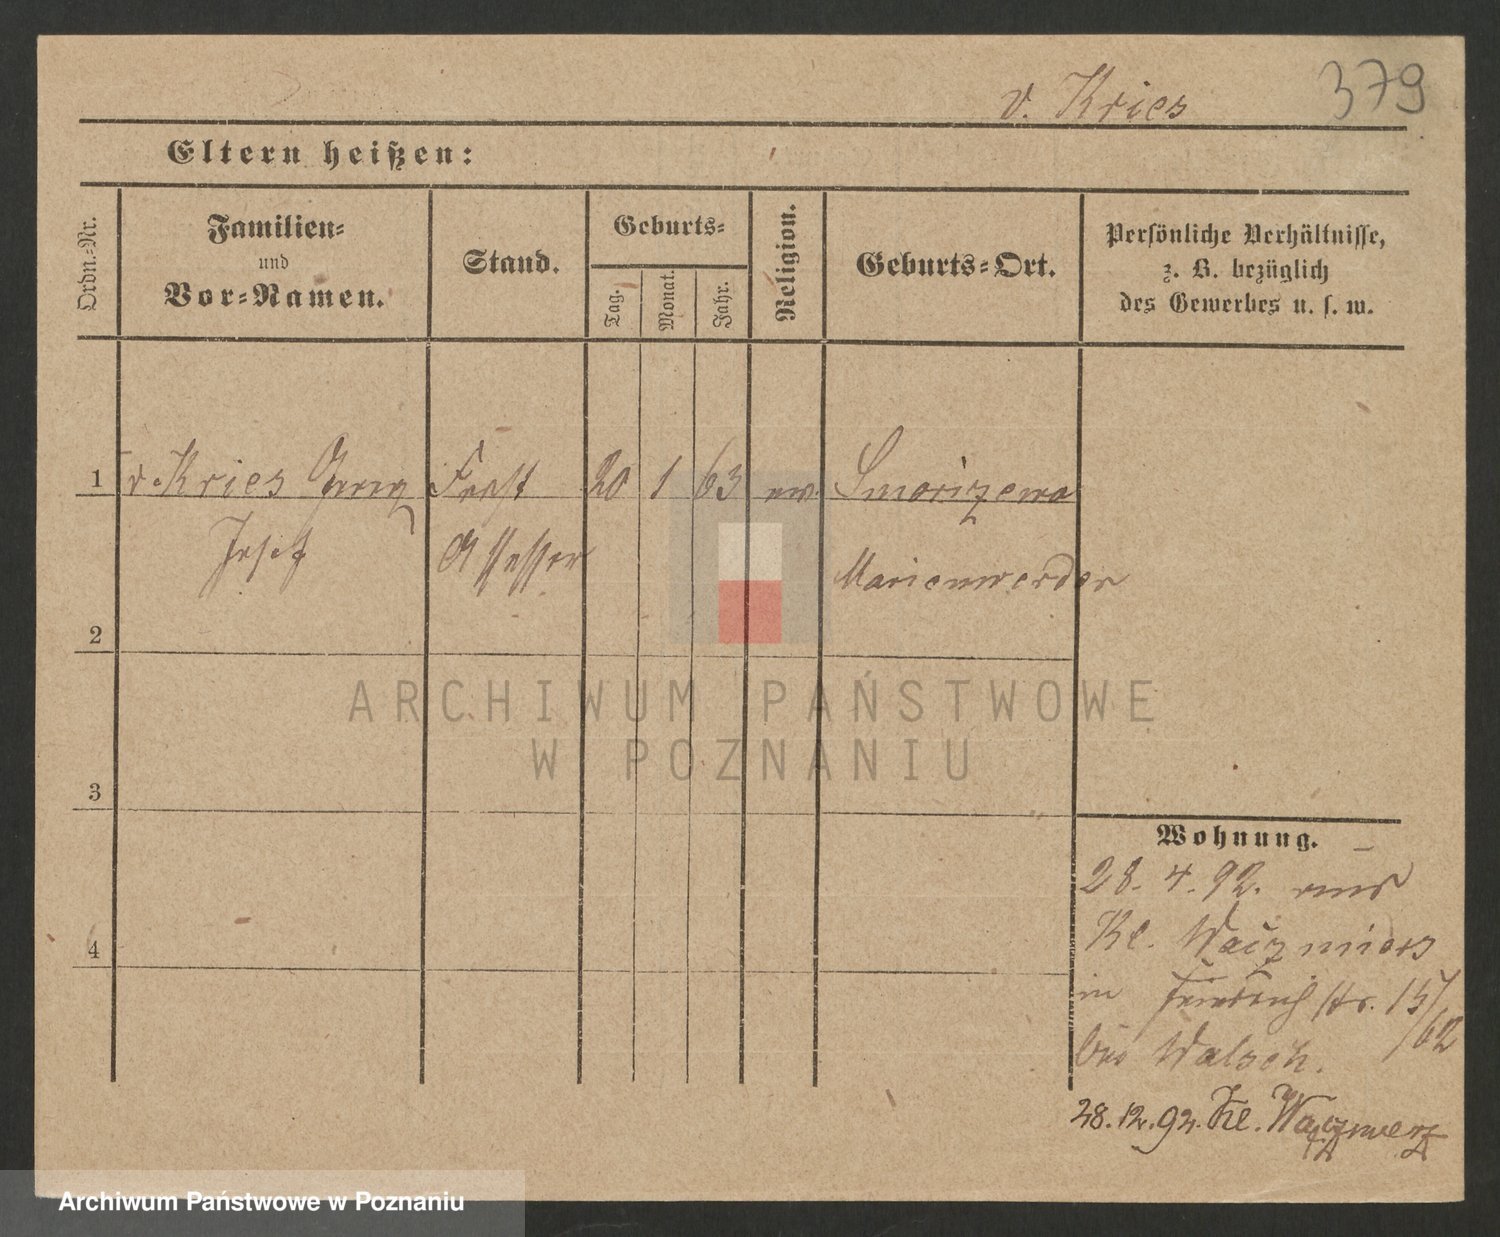 v. Kries
379
Eltern heißen:
Ordn.-Nr.
Familien-
und
Vor-Namen.
Stand.
Geburts-
Tag.
Monat.
Jahr.
Religion.
Geburts-Ort.
Persönliche Verhältnisse,
z. B. bezüglich
des Gewerbes u. s. w.
1 v. Kries Georg Forst 20 1 63 ev.
Josef Assessor Marienwerder
2
3
4
ARCHIWUM PAŃSTWOWE
W POZNANIU
Wohnung.
28. 4. 92. aus
Kl.
in Friedrich str. 15/
/62
bei Walsch.
28.12.92. Kl.
Archiwum Państwowe w Poznaniu